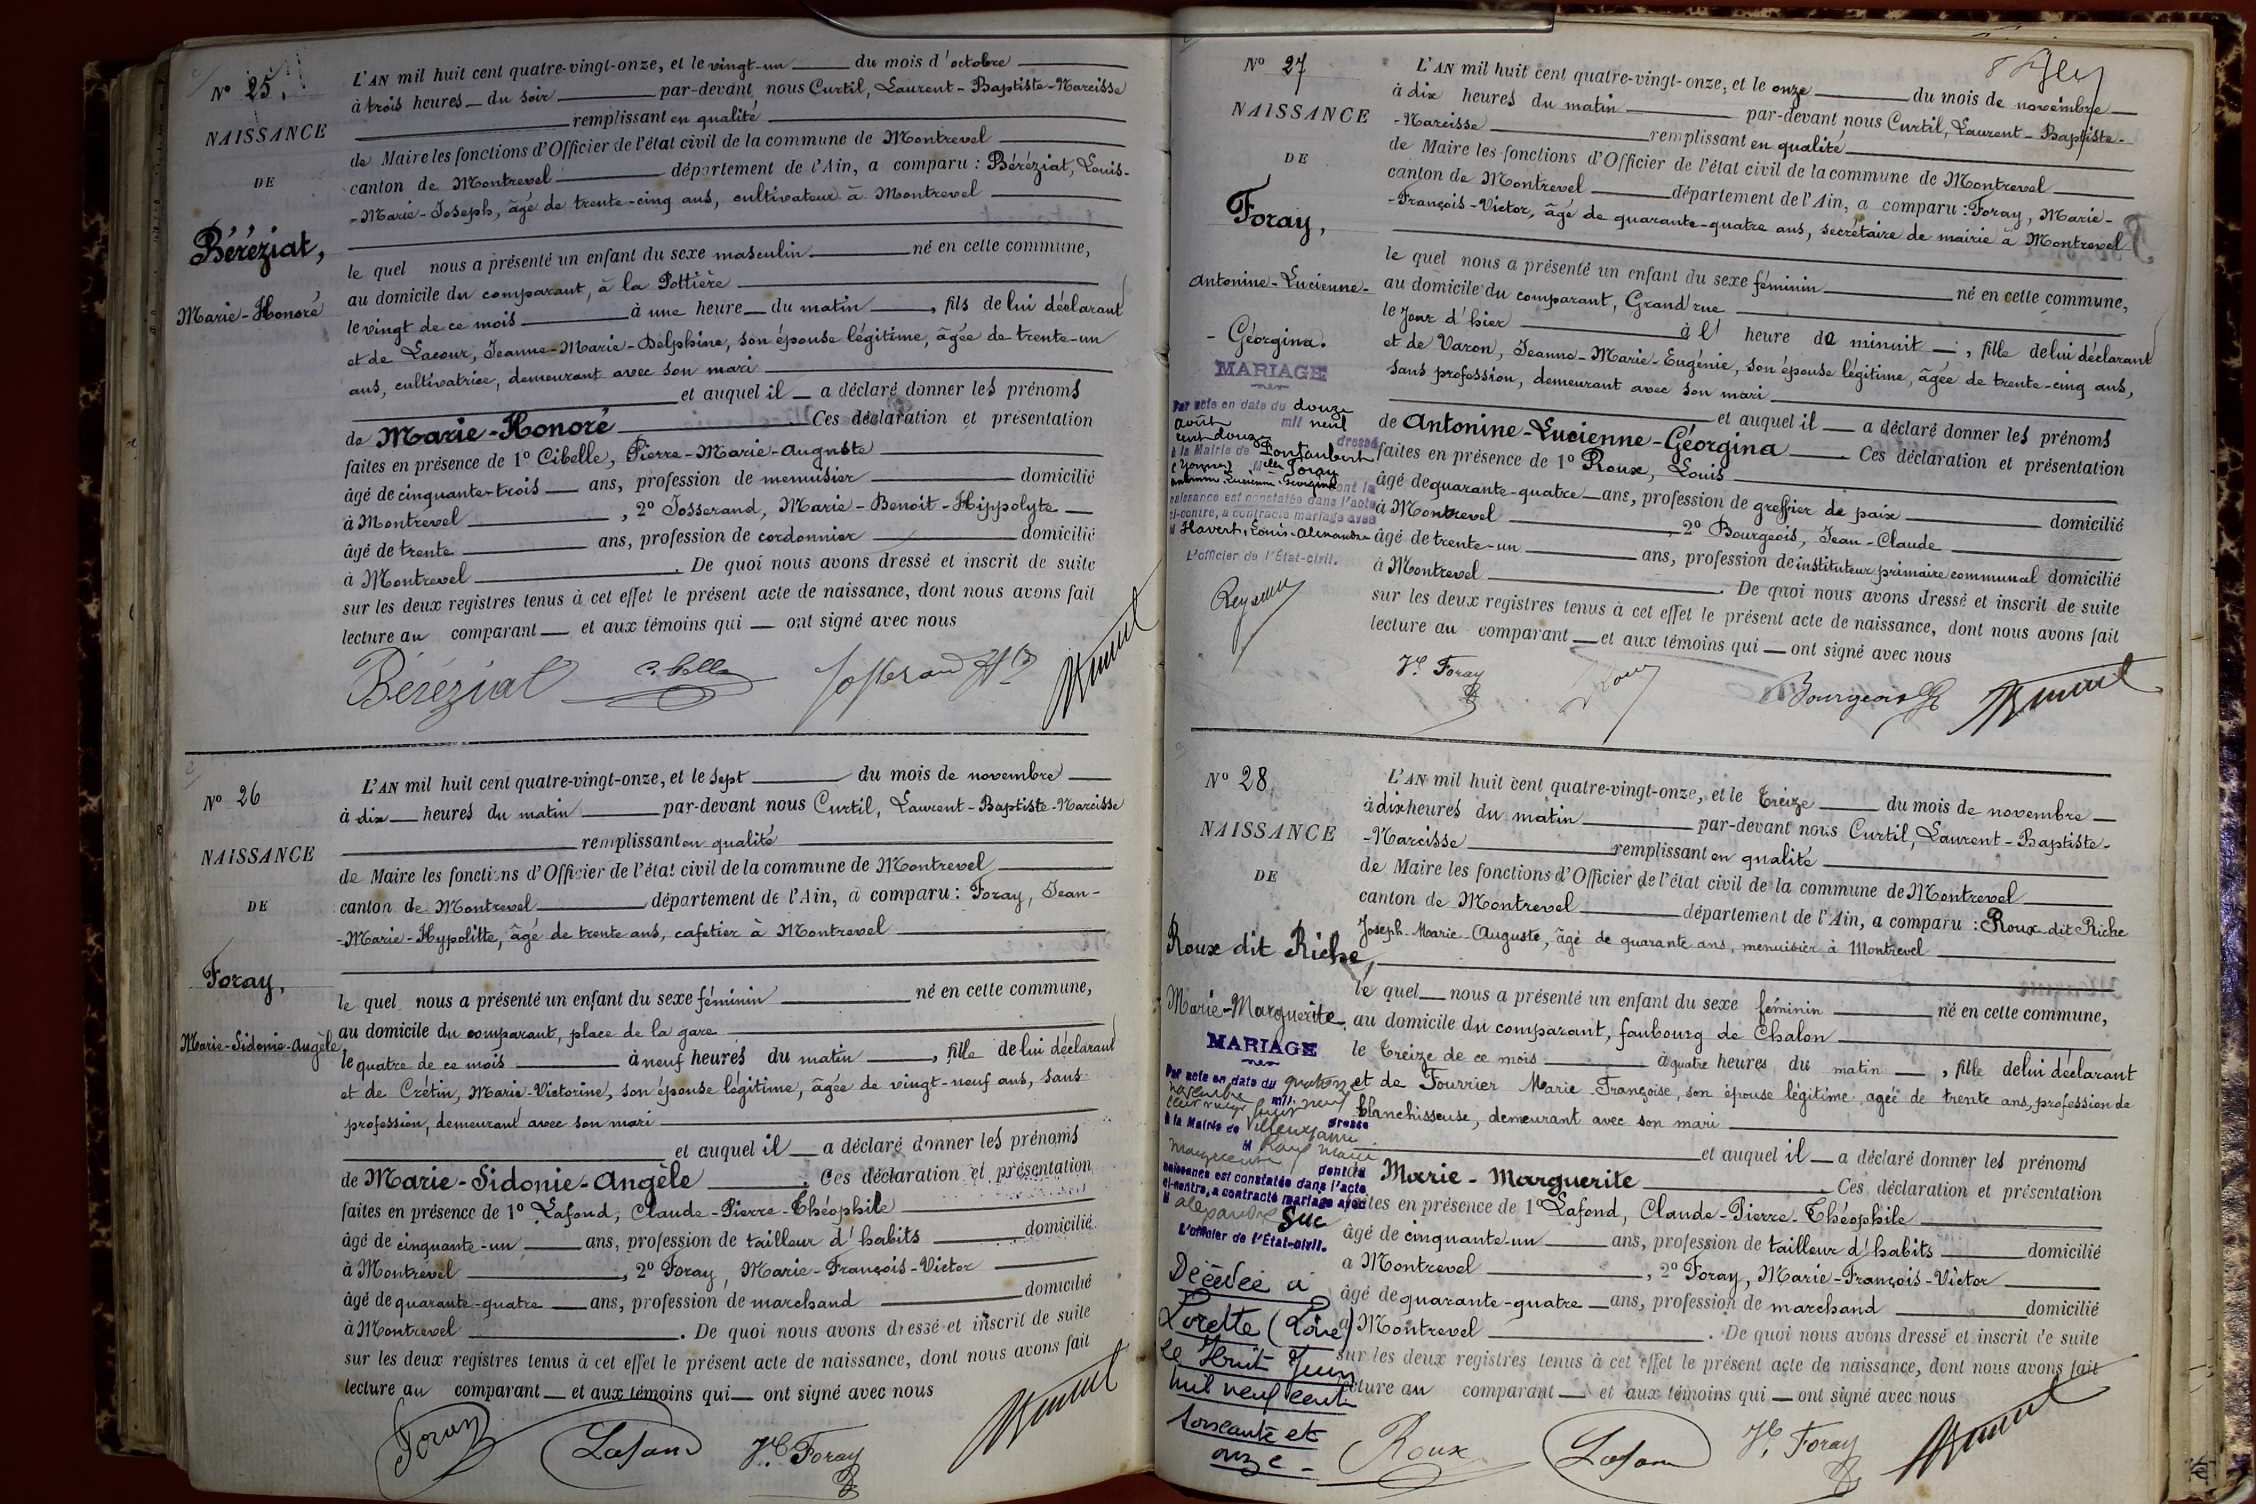 Nº 25.
NAISSANCE
DE
Béréziat,
Marie-Honoré
L'AN mil huit cent quatre-vingt-onze, et le vingt-un du mois d'octobre
à trois heures du soir par-devant nous Curtil, Laurent-Baptiste-Narcisse
remplissant en qualité
de Maire les fonctions d'Officier de l'état civil de la commune de Montrevel
canton de Montrevel département de l'Ain, a comparu : Béréziat, Louis-
-Marie-Joseph, âgé de trente-cinq ans, cultivateur à Montrevel
le quel nous a présenté un enfant du sexe masculin né en cette commune,
au domicile du comparant, à la Pottière
le vingt de ce mois à une heure du matin, fils de lui déclarant
et de Lacour, Jeanne-Marie-Delphine, son épouse légitime, âgée de trente-un
ans, cultivatrice, demeurant avec son mari
et auquel il a déclaré donner les prénoms
de Marie-Honoré Ces déclaration et présentation
faites en présence de 1º Cibelle, Pierre-Marie-Auguste
âgé de cinquante-trois ans, profession de menuisier domicilié
à Montrevel, 2º Josserand, Marie-Benoit-Hippolyte
âgé de trente ans, profession de cordonnier domicilié
à Montrevel. De quoi nous avons dressé et inscrit de suite
sur les deux registres tenus à cet effet le présent acte de naissance, dont nous avons fait
lecture au comparant et aux témoins qui ont signé avec nous
Béréziat Cibelle Josserand
Nº 26
NAISSANCE
DE
Foray,
Marie-Sidonie-Angèle
L'AN mil huit cent quatre-vingt-onze, et le sept du mois de novembre
à dix heures du matin par-devant nous Curtil, Laurent-Baptiste-Narcisse
remplissant en qualité
de Maire les fonctions d'Officier de l'état civil de la commune de Montrevel
canton de Montrevel département de l'Ain, a comparu : Foray, Jean-
-Marie-Hypolitte, âgé de trente ans, cafetier à Montrevel
le quel nous a présenté un enfant du sexe féminin né en cette commune,
au domicile du comparant, place de la gare
le quatre de ce mois à neuf heures du matin, fille de lui déclarant
et de Crétin, Marie-Victorine, son épouse légitime, âgée de vingt-neuf ans, sans
profession, demeurant avec son mari
et auquel il a déclaré donner les prénoms
de Marie-Sidonie-Angèle. Ces déclaration et présentation
faites en présence de 1º Lafond, Claude-Pierre-Théophile
âgé de cinquante-un ans, profession de tailleur d'habits domicilié
à Montrevel, 2º Foray, Marie-François-Victor
âgé de quarante-quatre ans, profession de marchand domicilié
à Montrevel. De quoi nous avons dressé et inscrit de suite
sur les deux registres tenus à cet effet le présent acte de naissance, dont nous avons fait
lecture au comparant et aux témoins qui ont signé avec nous
Foray Lafond Vr Foray
Nº 27
NAISSANCE
DE
Foray,
Antonine-Lucienne-
-Géorgina.
MARIAGE
Par acte en date du douze
août mil neuf
cent douze dressé
à la Mairie de Pontaubert
(Yonne) Melle Foray
Antonine-Lucienne-Géorgina dont la
naissance est constatée dans l'acte
ci-contre, a contracté mariage avec
M Havert, Louis-Alexandre
L'officier de l'État-civil.
L'AN mil huit cent quatre-vingt-onze, et le onze du mois de novembre
à dix heures du matin par-devant nous Curtil, Laurent-Baptiste-
-Narcisse remplissant en qualité
de Maire les fonctions d'Officier de l'état civil de la commune de Montrevel
canton de Montrevel département de l'Ain, a comparu : Foray, Marie-
-François-Victor, âgé de quarante-quatre ans, secrétaire de mairie à Montrevel
le quel nous a présenté un enfant du sexe féminin né en cette commune,
au domicile du comparant, Grand'rue
le jour d'hier à l'heure de minuit, fille de lui déclarant
et de Varon, Jeanne-Marie-Eugénie, son épouse légitime, âgée de trente-cinq ans,
sans profession, demeurant avec son mari
et auquel il a déclaré donner les prénoms
de Antonine-Lucienne-Géorgina Ces déclaration et présentation
faites en présence de 1º Roux, Louis
âgé de quarante-quatre ans, profession de greffier de paix domicilié
à Montrevel 2º Bourgeois, Jean-Claude
âgé de trente-un ans, profession de instituteur primaire communal domicilié
à Montrevel. De quoi nous avons dressé et inscrit de suite
sur les deux registres tenus à cet effet le présent acte de naissance, dont nous avons fait
lecture au comparant et aux témoins qui ont signé avec nous
Vr Foray Roux Bourgeois
Nº 28
NAISSANCE
DE
Roux dit Riche
Marie-Marguerite
MARIAGE
Par acte en date du
mil neuf
cent vingt
dressé
à la Mairie de Villeurbanne
M Roux Marie
Marguerite dont la
naissance est constatée dans l'acte
ci-contre, a contracté mariage avec
M Alexandre Suc
L'officier de l'État-civil.
Décédée à
Lorette (Loire)
le Huit Juin
mil neuf cent
soixante et
onze -
L'AN mil huit cent quatre-vingt-onze, et le treize du mois de novembre
à dix heures du matin par-devant nous Curtil, Laurent-Baptiste-
-Narcisse remplissant en qualité
de Maire les fonctions d'Officier de l'état civil de la commune de Montrevel
canton de Montrevel département de l'Ain, a comparu : Roux-dit Riche
Joseph-Marie-Auguste, âgé de quarante ans, menuisier à Montrevel
le quel nous a présenté un enfant du sexe féminin né en cette commune,
au domicile du comparant, faubourg de Chalon
le treize de ce mois à quatre heures du matin, fille de lui déclarant
et de Fourrier Marie Françoise, son épouse légitime agée de trente ans, profession de
blanchisseuse, demeurant avec son mari
et auquel il a déclaré donner les prénoms
Marie-Marguerite Ces déclaration et présentation
faites en présence de 1º Lafond, Claude-Pierre-Théophile
âgé de cinquante-un ans, profession de tailleur d'habits domicilié
à Montrevel, 2º Foray, Marie-François-Victor
âgé de quarante-quatre ans, profession de marchand domicilié
à Montrevel. De quoi nous avons dressé et inscrit de suite
sur les deux registres tenus à cet effet le présent acte de naissance, dont nous avons fait
lecture au comparant et aux témoins qui ont signé avec nous
Roux Lafond Vr Foray